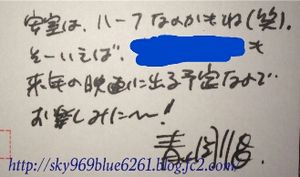 安室は、ハーフなのかもね(笑).
そーいえば、も
来年の映画に出る予定なので
お楽しみに〜!
http://sky969blue6261.blog.jc2.com/